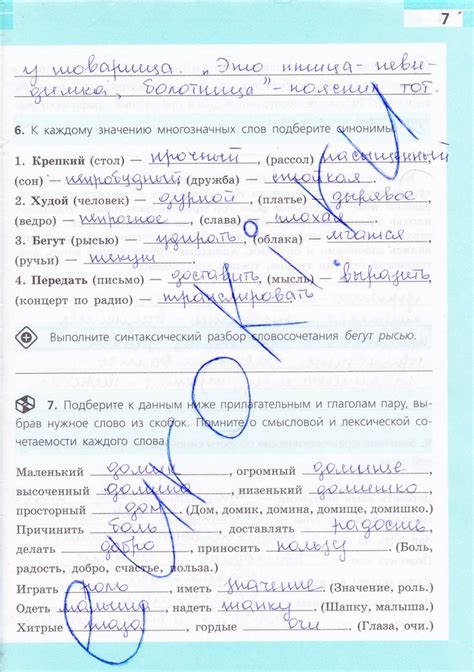 7
у товарища. „Это птица-неви-
димка, болотница"- пояснил тот.
6. К каждому значению многозначных слов подберите синонимы.
1. Крепкий (стол) — прочный, (рассол) насыщенный
(сон) — непробудный, (дружба) — стойкая
2. Худой (человек) — дурной, (платье) — дырявое,
(ведро) — непрочное, (слава) — плохая.
3. Бегут (рысью) — удирать, (облака) — мчатся
(ручьи) — текут.
4. Передать (письмо) — доставить, (мысль) выразить,
(концерт по радио) — транслировать
Выполните синтаксический разбор словосочетания бегут рысью.
7. Подберите к данным ниже прилагательным и глаголам пару, вы-
брав нужное слово из скобок. Помните о смысловой и лексической со-
четаемости каждого слова.
Маленький домик, огромный домище,
высоченный домина, низенький домишко
просторный дом. (Дом, домик, домина, домище, домишко.)
Причинить боль, доставлять радость,
делать добро, приносить пользу. (Боль,
радость, добро, счастье, польза.)
Играть роль, иметь значение. (Значение, роль.)
Одеть малыша, надеть шапку. (Шапку, малыша.)
Хитрые глаза, гордые очи. (Глаза, очи.)